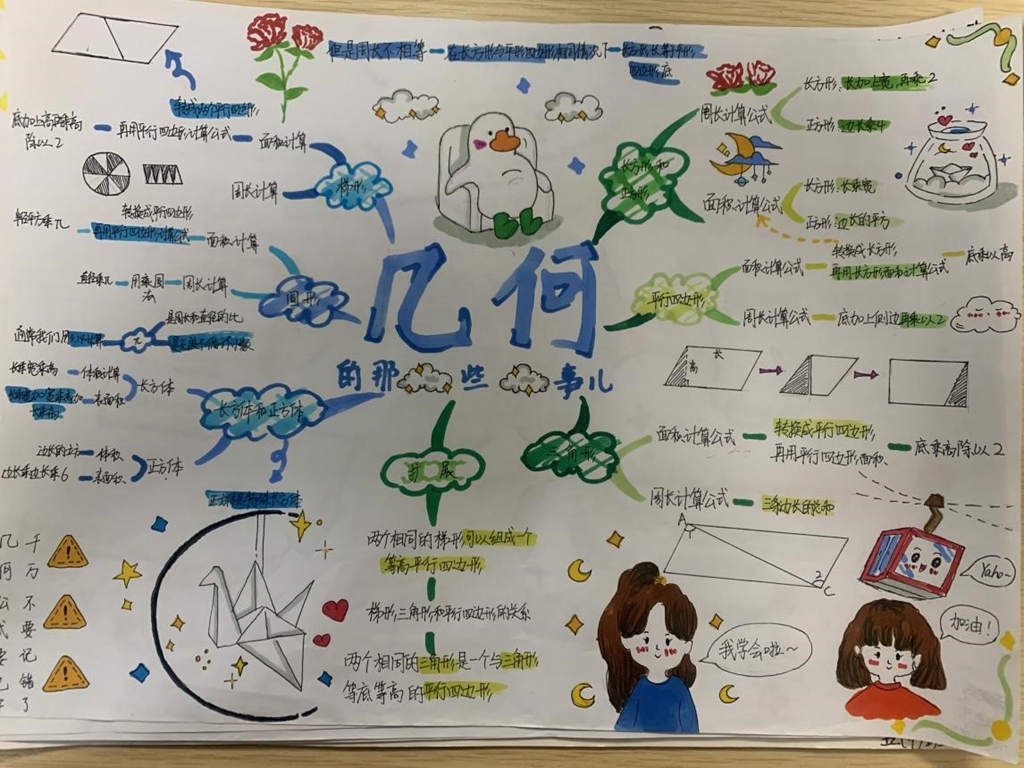 但是周长不相等
在长方形与平行四边形相同情况下
长方形长等于平行
四边形底
转成两个平行四边形
底加上高
除以2
再用平行四边形计算公式
面积计算
周长计算
梯形
转换成平行四边形
再用平行四边形计算公式
面积计算
直径乘π
用乘圆
法
周长计算
圆形
是周长和直径的比
π
通常我们用3.14计算
是无限不循环小数
长乘宽乘高
体积计算
表面积
长方体
边长的立方
体积
边长乘边长乘6
表面积
正方体
长方体和正方体
正方体是特殊长方体
几何
的那些事儿
长方形和
正方形
周长计算公式
长方形:长加上宽,再乘2
正方形:边长乘4
面积计算公式
长方形:长乘宽
正方形:边长的平方
平行四边形
面积计算公式
转换成长方形
再用长方形面积计算公式
底乘以高
周长计算公式
底加上侧边再乘以2
长
高
三角形
面积计算公式
转换成平行四边形
再用平行四边形面积
底乘高除以2
周长计算公式
三条边长的总和
A
2
C
扩展
两个相同的梯形可以组成一个
等高平行四边形
梯形,三角形和平行四边形的关系
两个相同的三角形是一个与三角形
等底等高的平行四边形
千万不要记错了
几何公式
我学会啦~
Yaho~
加油!